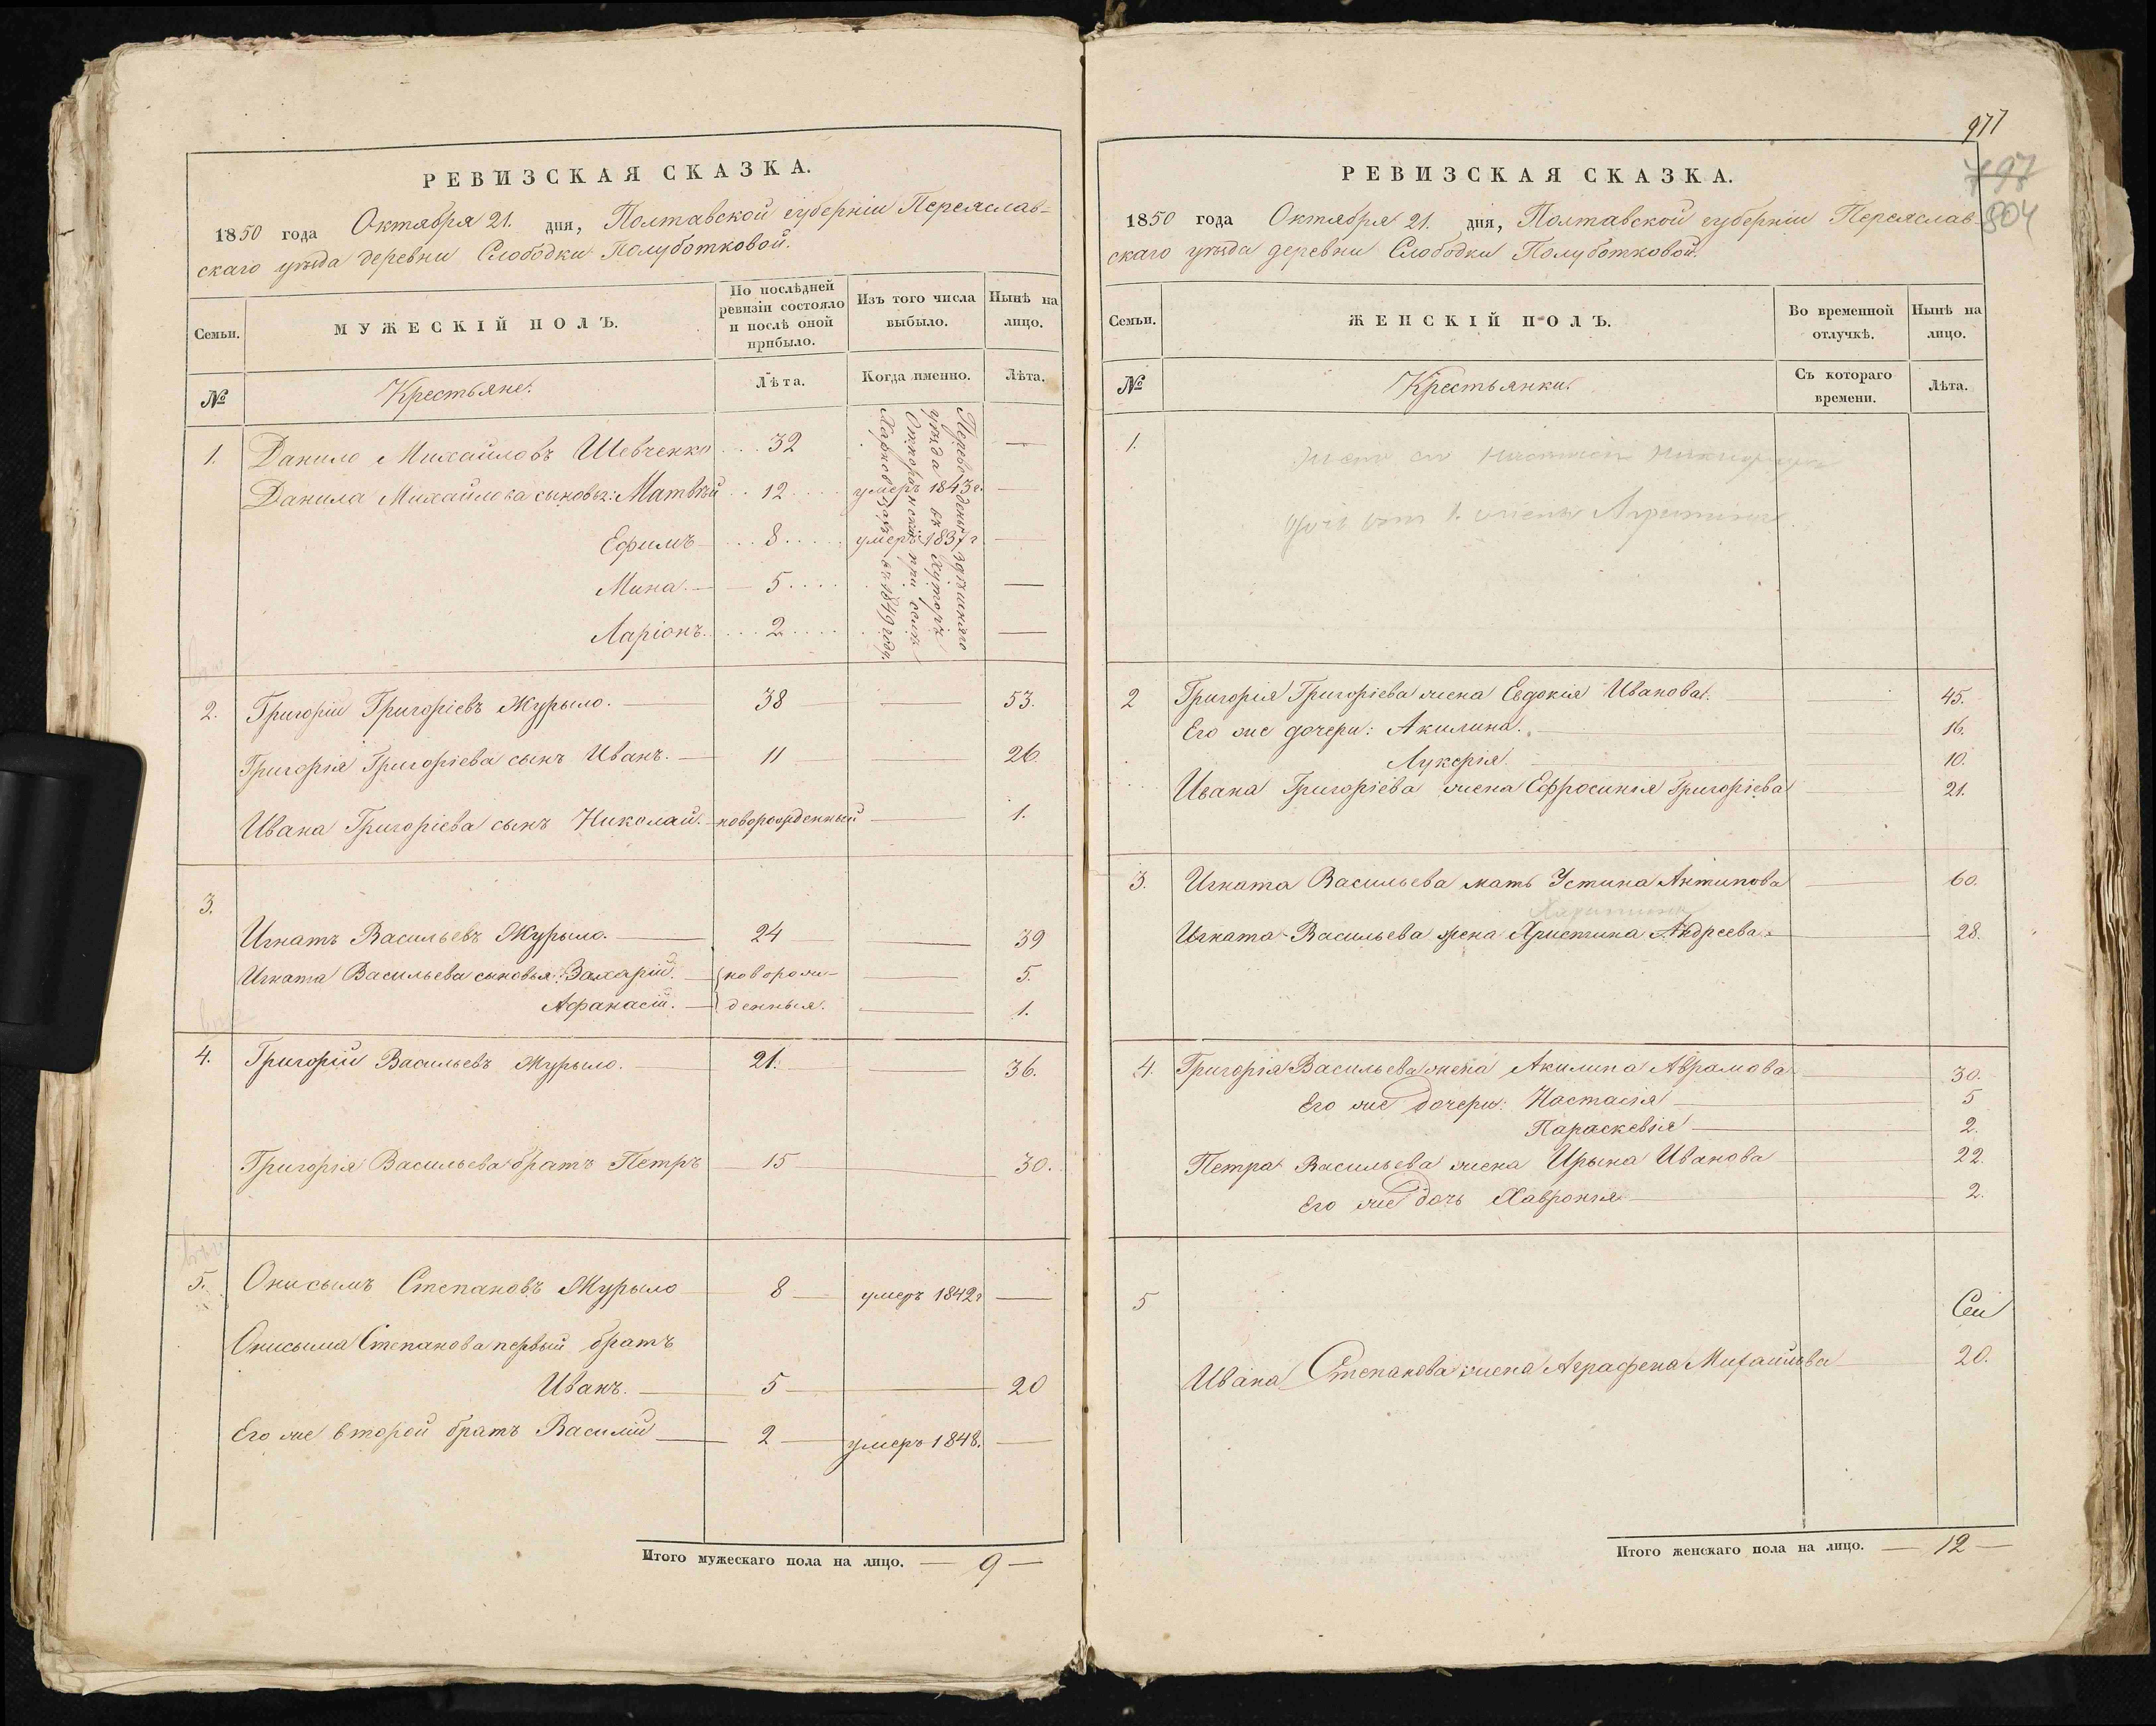 РЕВИЗСКАЯ СКАЗКА.
1850 года Октября 21. дня, Полтавской губерніи Переяслав-
скаго уѣзда деревни Слободки Полуботковой.
Семьи. МУЖЕСКІЙ ПОЛЪ. По послѣдней ревизіи состояло и послѣ оной прибыло. Изъ того числа выбыло. Нынѣ на лицо.
№ Крестьяне. Лѣта. Когда именно. Лѣта.
1. Данило Михайловъ Шевченко 32 —
Данила Михайлова сыновья: Матвѣй 12 умеръ 1843 г. —
Ефимъ 8 умеръ 1837 г —
Мина. 5 —
Ларіонъ. 2 —
Переведены здѣшняго
уѣзда въ хуторъ
при селѣ
въ 1849 году.
2. Григорій Григоріевъ Журыло. 38 — 53.
Григорія Григоріева сынъ Иванъ. 11 26.
Ивана Григоріева сынъ Николай. новорожденный 1.
3.
Игнатъ Васильевъ Журыло. 24 39
Игната Васильева сыновья: Захарій. новорож- 5.
Афанасій. денныя. 1.
4. Григорій Васильевъ Журыло. 21. 36.
Григорія Васильева братъ Петръ 15 30.
5. Онисымъ Степановъ Журыло 8 умеръ 1842 г —
Онисыма Степанова первый братъ
Иванъ. 5 20
Его же второй братъ Василій 2 умеръ 1848. —
Итого мужескаго пола на лицо. — 9 —
977
797
804
РЕВИЗСКАЯ СКАЗКА.
1850 года Октября 21. дня, Полтавской губерніи Переяслав-
скаго уѣзда деревни Слободки Полуботковой.
Семьи. ЖЕНСКІЙ ПОЛЪ. Во временной отлучкѣ. Нынѣ на лицо.
№ Крестьянки. Съ котораго времени. Лѣта.
1.
2 Григорія Григоріева жена Евдокія Иванова. 45.
Его же дочери: Акилина. 16.
Лукерія. 10.
Ивана Григоріева жена Ефросинія Григоріева 21.
3. Игната Васильева мать Устина Антипова 60.
Игната Васильева жена Христина Андреева 28.
4. Григорія Васильева жена Акилина Аврамова 30.
Его же дочери: Настасія 5
Параскевія 2.
Петра Васильева жена Ирына Иванова 22.
Его же дочь Хавронія 2.
5
Ивана Степанова жена Аграфена Михайлова 20.
Итого женскаго пола на лицо. — 12 —